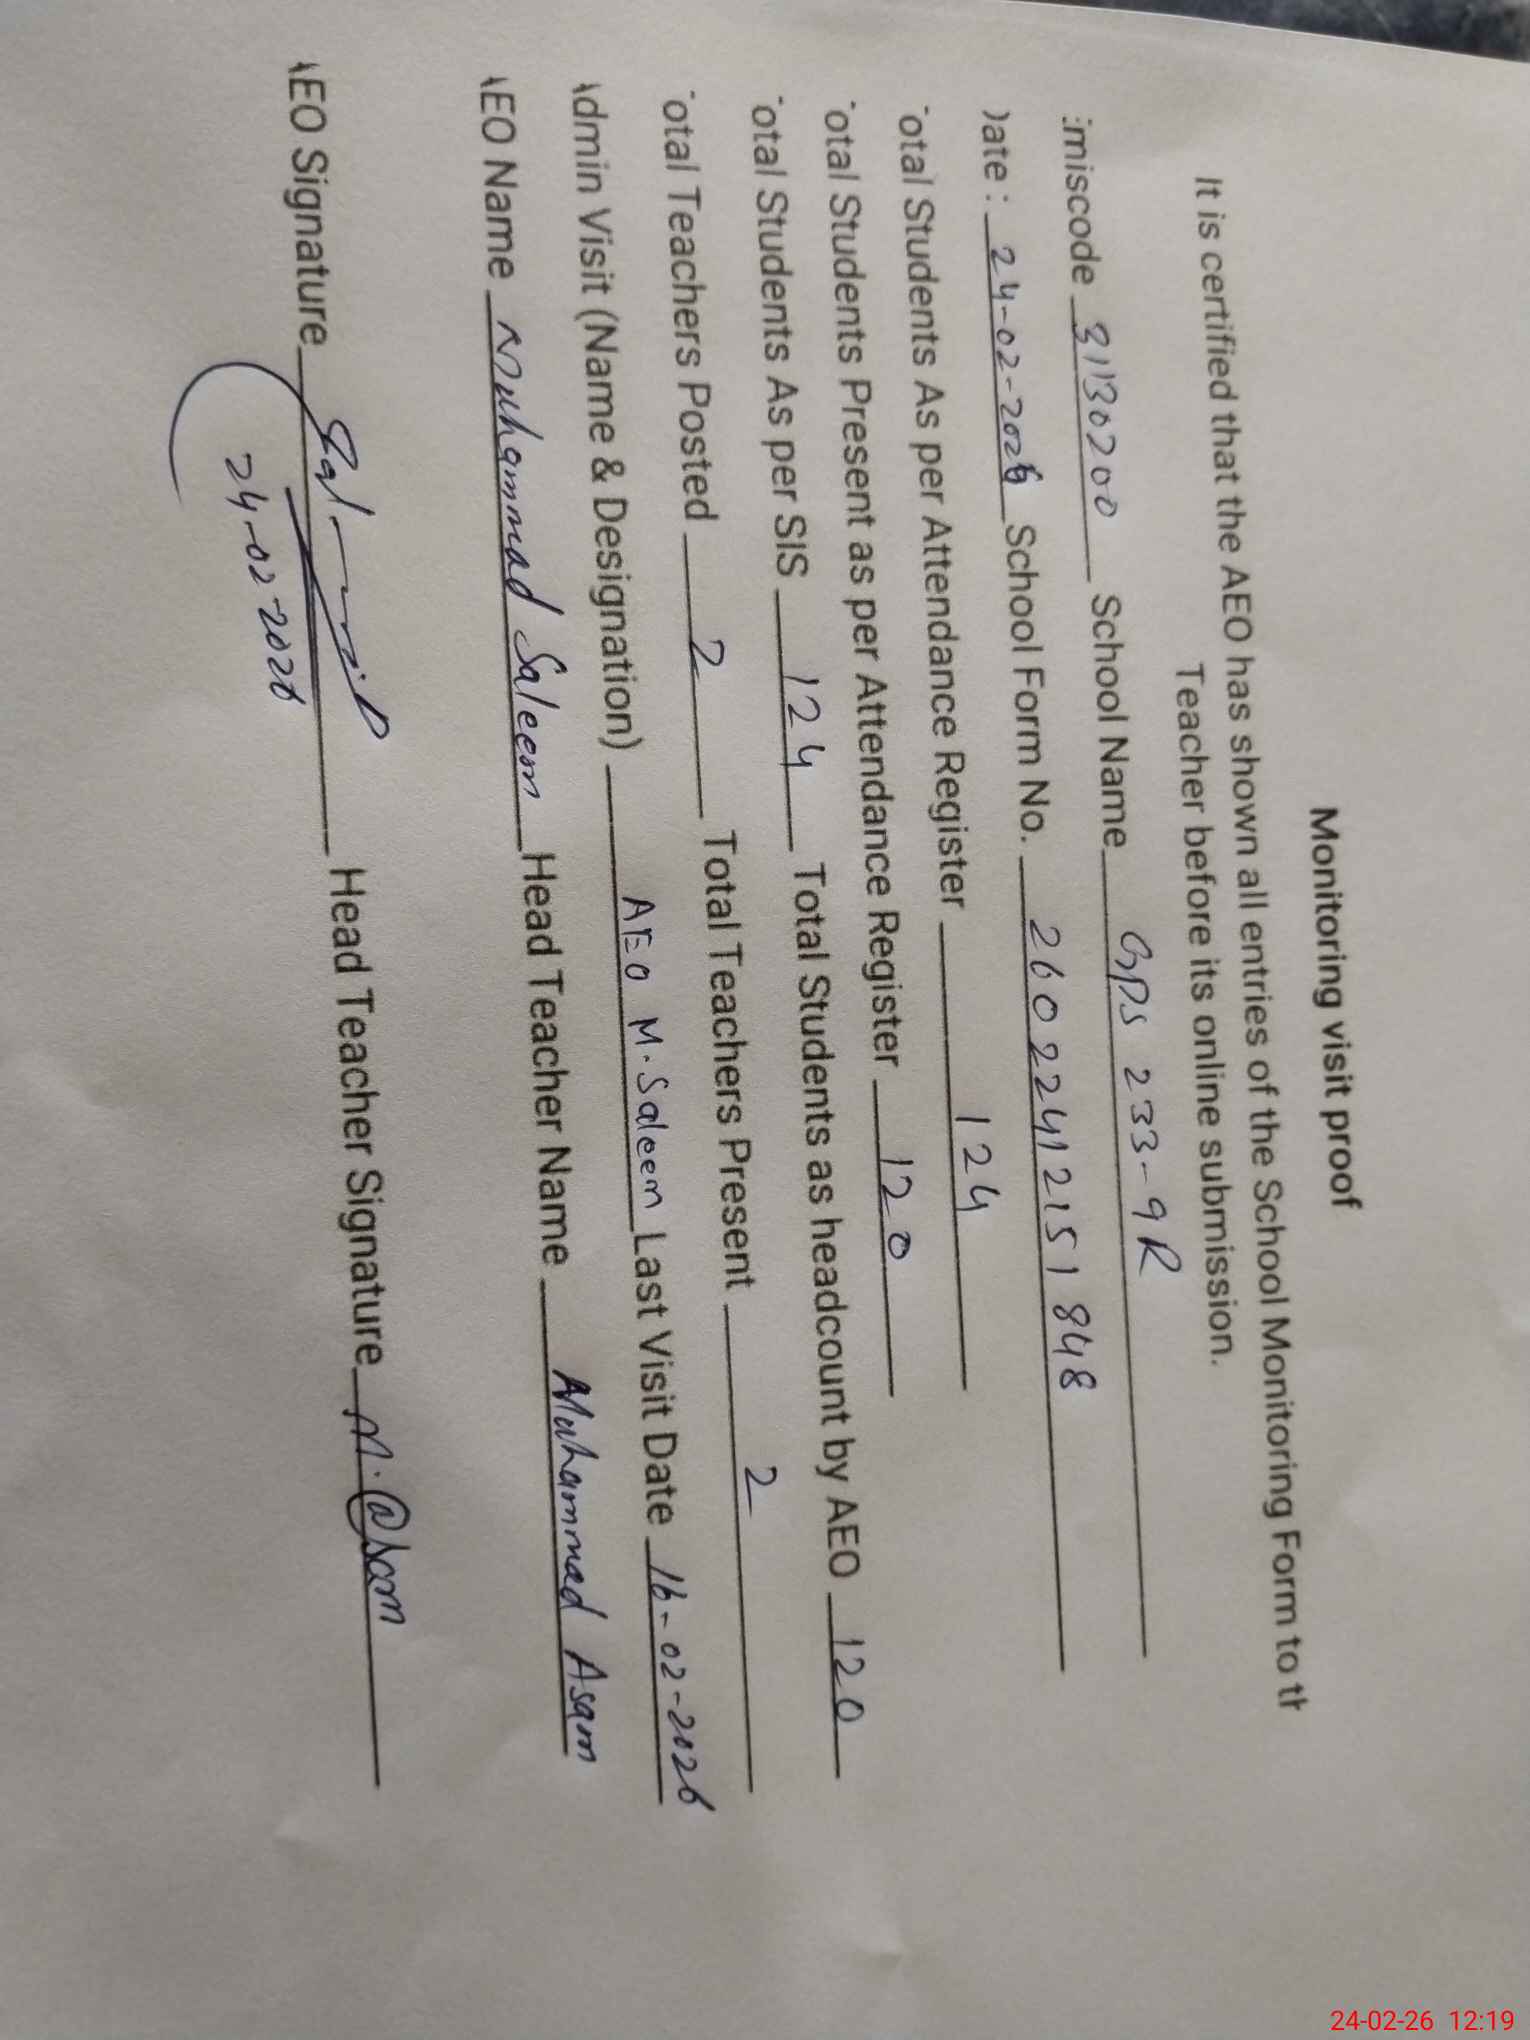 Monitoring visit proof
It is certified that the AEO has shown all entries of the School Monitoring Form to th
Teacher before its online submission.
Emiscode 31130200 School Name GPS 233-9R
Date : 24-02-2026 School Form No. 2602241215 1848
Total Students As per Attendance Register 124
Total Students Present as per Attendance Register 120
Total Students As per SIS 124 Total Students as headcount by AEO 120
Total Teachers Posted 2 Total Teachers Present 2
Admin Visit (Name & Designation) AEO M.Saleem Last Visit Date 16-02-2026
AEO Name Muhammad Saleem Head Teacher Name Muhammad Asam
AEO Signature Head Teacher Signature
24-02-2026
24-02-26 12:19